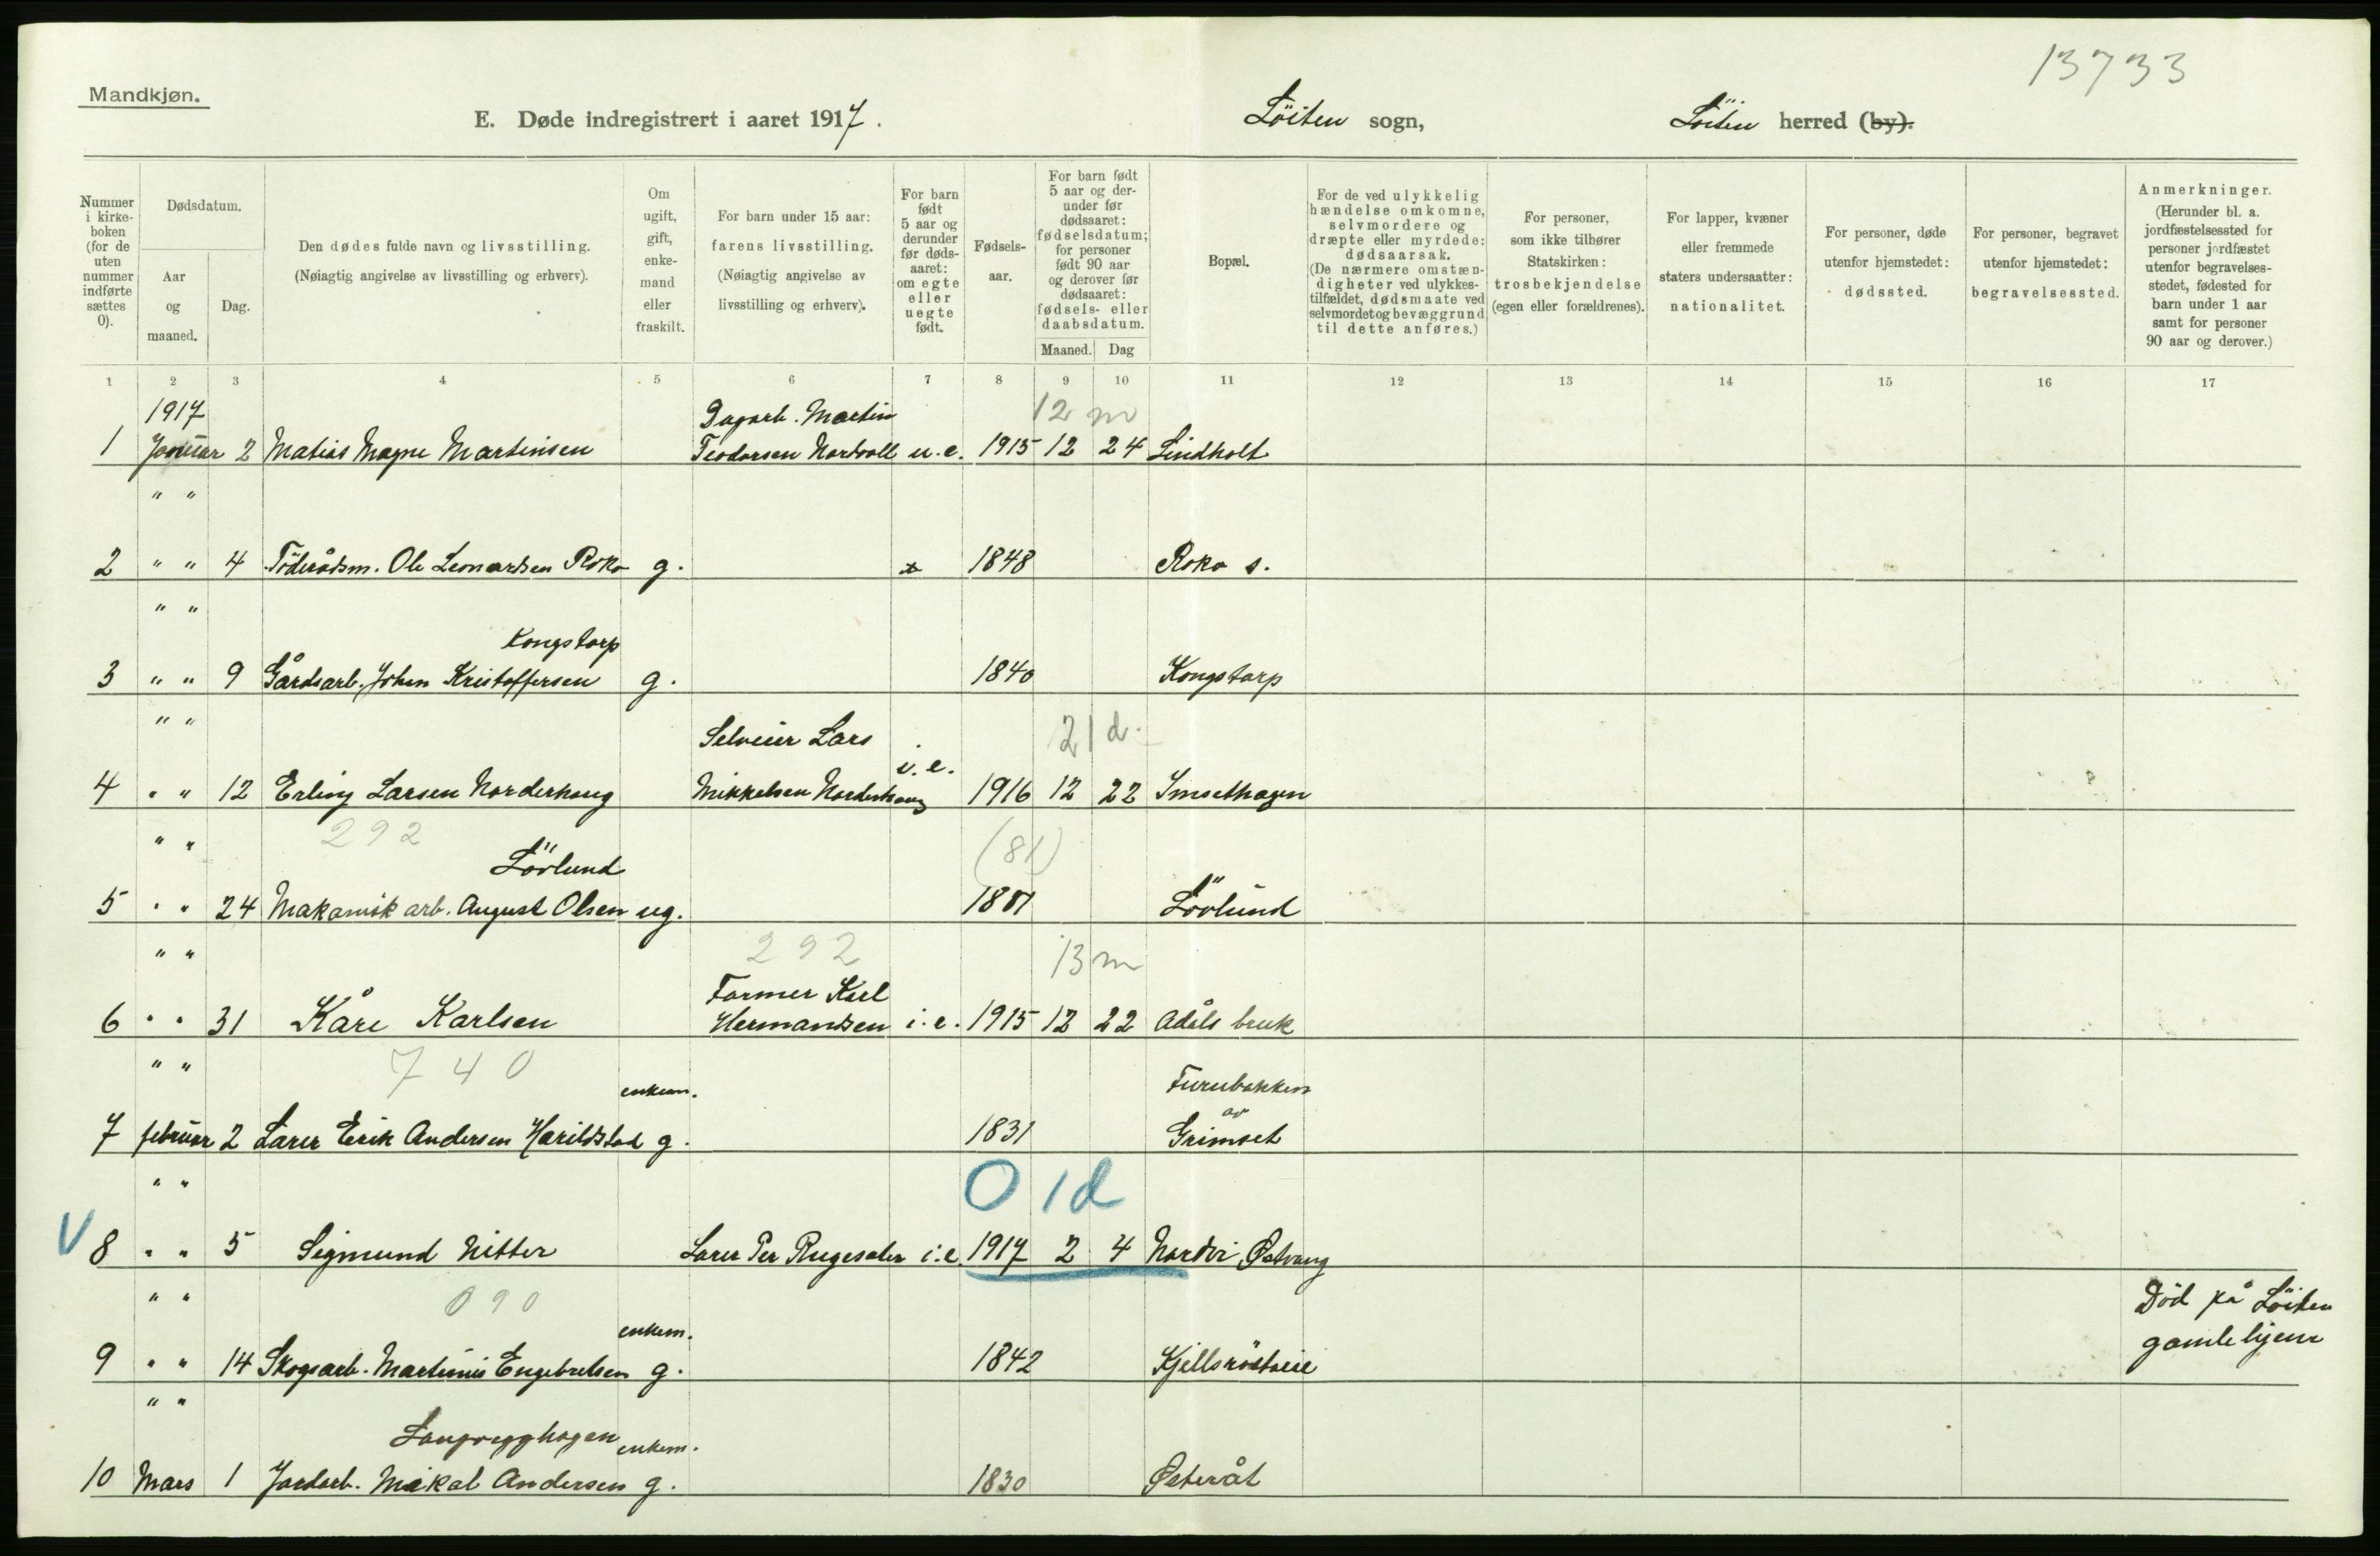 13733
Mandkjøn.
E. Døde indregistrert i aaret 1917. Löiten sogn, Löiten herred (by).
Nummer i kirkeboken (for de uten nummer indførte sættes 0).
Dødsdatum.
Aar og maaned.
Dag.
Den dødes fulde navn og livsstilling.
(Nøiagtig angivelse av livsstilling og erhverv).
Om ugift, gift, enkemand eller fraskilt.
For barn under 15 aar: farens livsstilling. (Nøiagtig angivelse av livsstilling og erhverv).
For barn født 5 aar og derunder før dødsaaret: om egte eller uegte født.
Fødselsaar.
For barn født 5 aar og derunder før dødsaaret: fødselsdatum; for personer født 90 aar og derover før dødsaaret: fødsels- eller daabsdatum.
Maaned. Dag
Bopæl.
For de ved ulykkelig hændelse omkomne, selvmordere og dræpte eller myrdede: dødsaarsak. (De nærmere omstændigheter ved ulykkestilfældet, dødsmaate ved selvmordet og bevæggrund til dette anføres.)
For personer, som ikke tilhører Statskirken: trosbekjendelse (egen eller forældrenes).
For lapper, kvæner eller fremmede staters undersaatter: nationalitet.
For personer, døde utenfor hjemstedet: dødssted.
For personer, begravet utenfor hjemstedet: begravelsessted.
Anmerkninger. (Herunder bl. a. jordfæstelsessted for personer jordfæstet utenfor begravelsesstedet, fødested for barn under 1 aar samt for personer 90 aar og derover.)
1 2 3 4 5 6 7 8 9 10 11 12 13 14 15 16 17
1917 Dagarb. Martin 12 m
1 Januar 2 Matias Magne Martinsen Teodorsen Nordvoll u.e. 1915 12 24 Lindholt
" "
2 " " 4 Föderådsm. Ole Leonardsen Roko g. 1848 Roko s.
" "
Kongstorp
3 " " 9 Gårdsarb. Johan Kristoffersen g. 1840 Kongstorp
" "
Selveier Lars 21 d.
4 " " 12 Erling Larsen Norderhaug Mikkelsen Norderhaug i.e. 1916 12 22 Imsethagen
" " 292 (81)
Lövlund
5 " " 24 Mekanisk arb. August Olsen ug. 1881 Lövlund
" " 292 13 m
Farmer Karl
6 " " 31 Kåre Karlsen Hermandsen i.e. 1915 12 22 Adåls bruk
" " 740
enkem. Furubakken av
7 februar 2 Lærer Erik Andersen Harildstad g. 1831 Grimset
" " 0 1d
V 8 " " 5 Sigmund Nitter Lærer Per Rugesæter i.e. 1917 2 4 Nordvi Østvang
" " 090 Död på Löiten
enkem. gamlehjem
9 " " 14 Skogsarb. Martinius Engebretsen g. 1842 Kjellsröstveie
" "
Langrygghagen enkem.
10 Mars 1 Jordarb. Mikal Andersen g. 1830 Østeråt